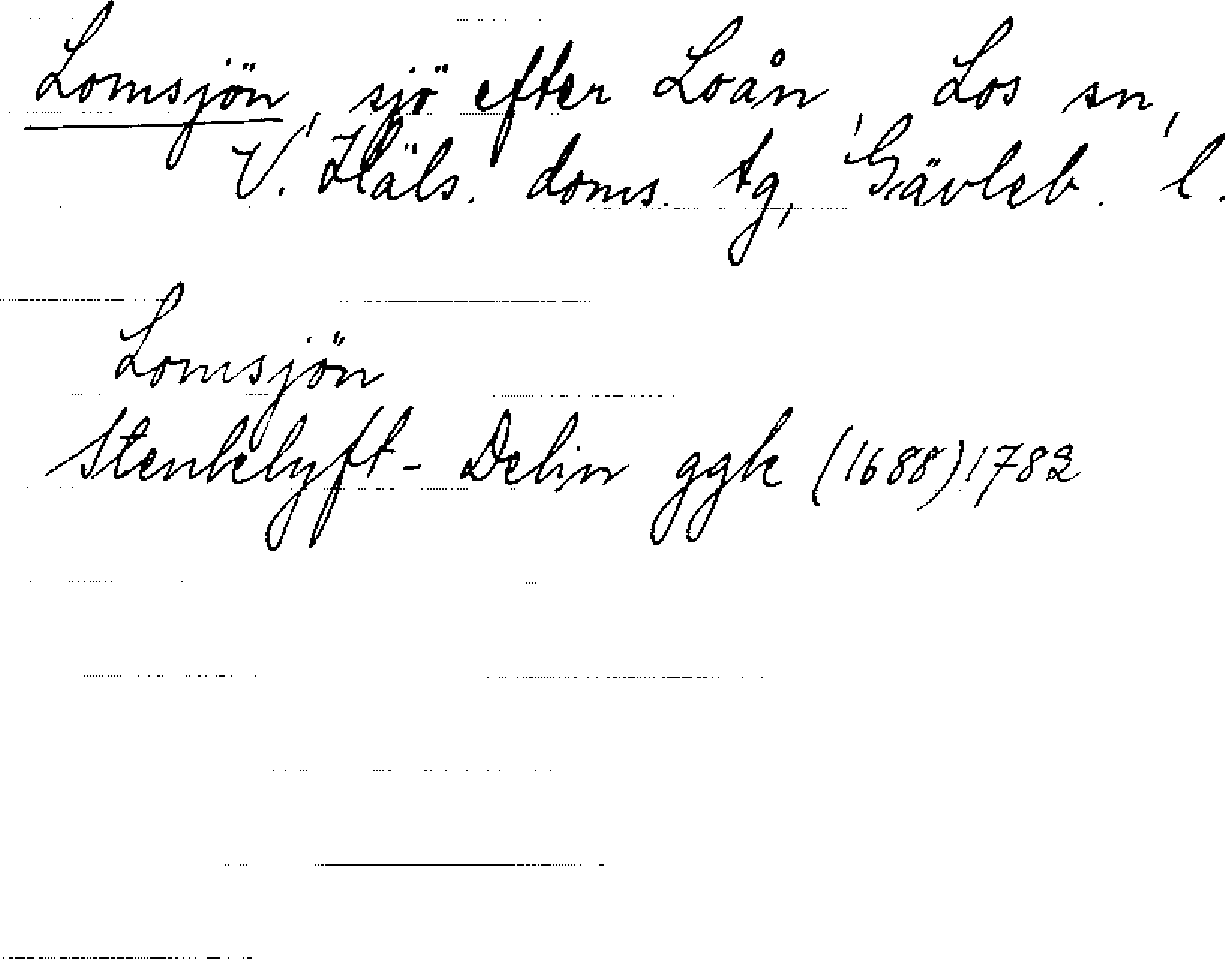 Lomsjön, sjö efter Loån, Los sn,
V. Häls. doms. tg, Gävleb. l.
Lomsjön
Stenklyft-Delin ggk (1688) 1782